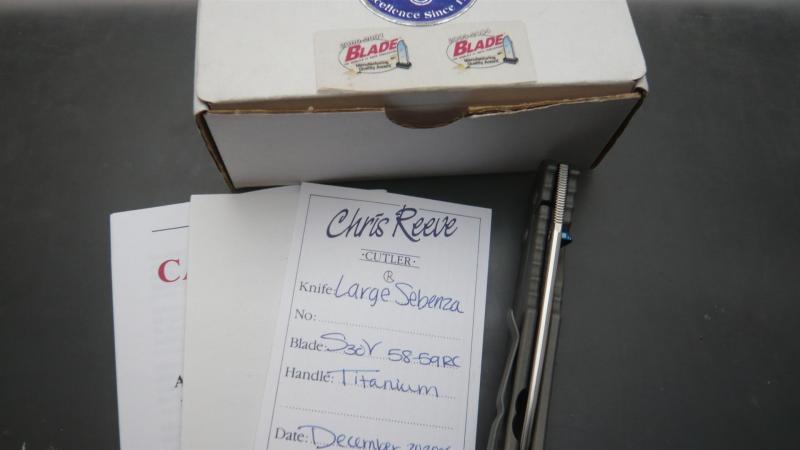 Excellence Since
BLADE
Manufacturing
Quality Award
BLADE
Manufacturing
Quality Award
Chris Reeve
·CUTLER·
Knife Large Sebenza
®
No:
Blade: S30V 58-59RC
Handle: Titanium
Date: December